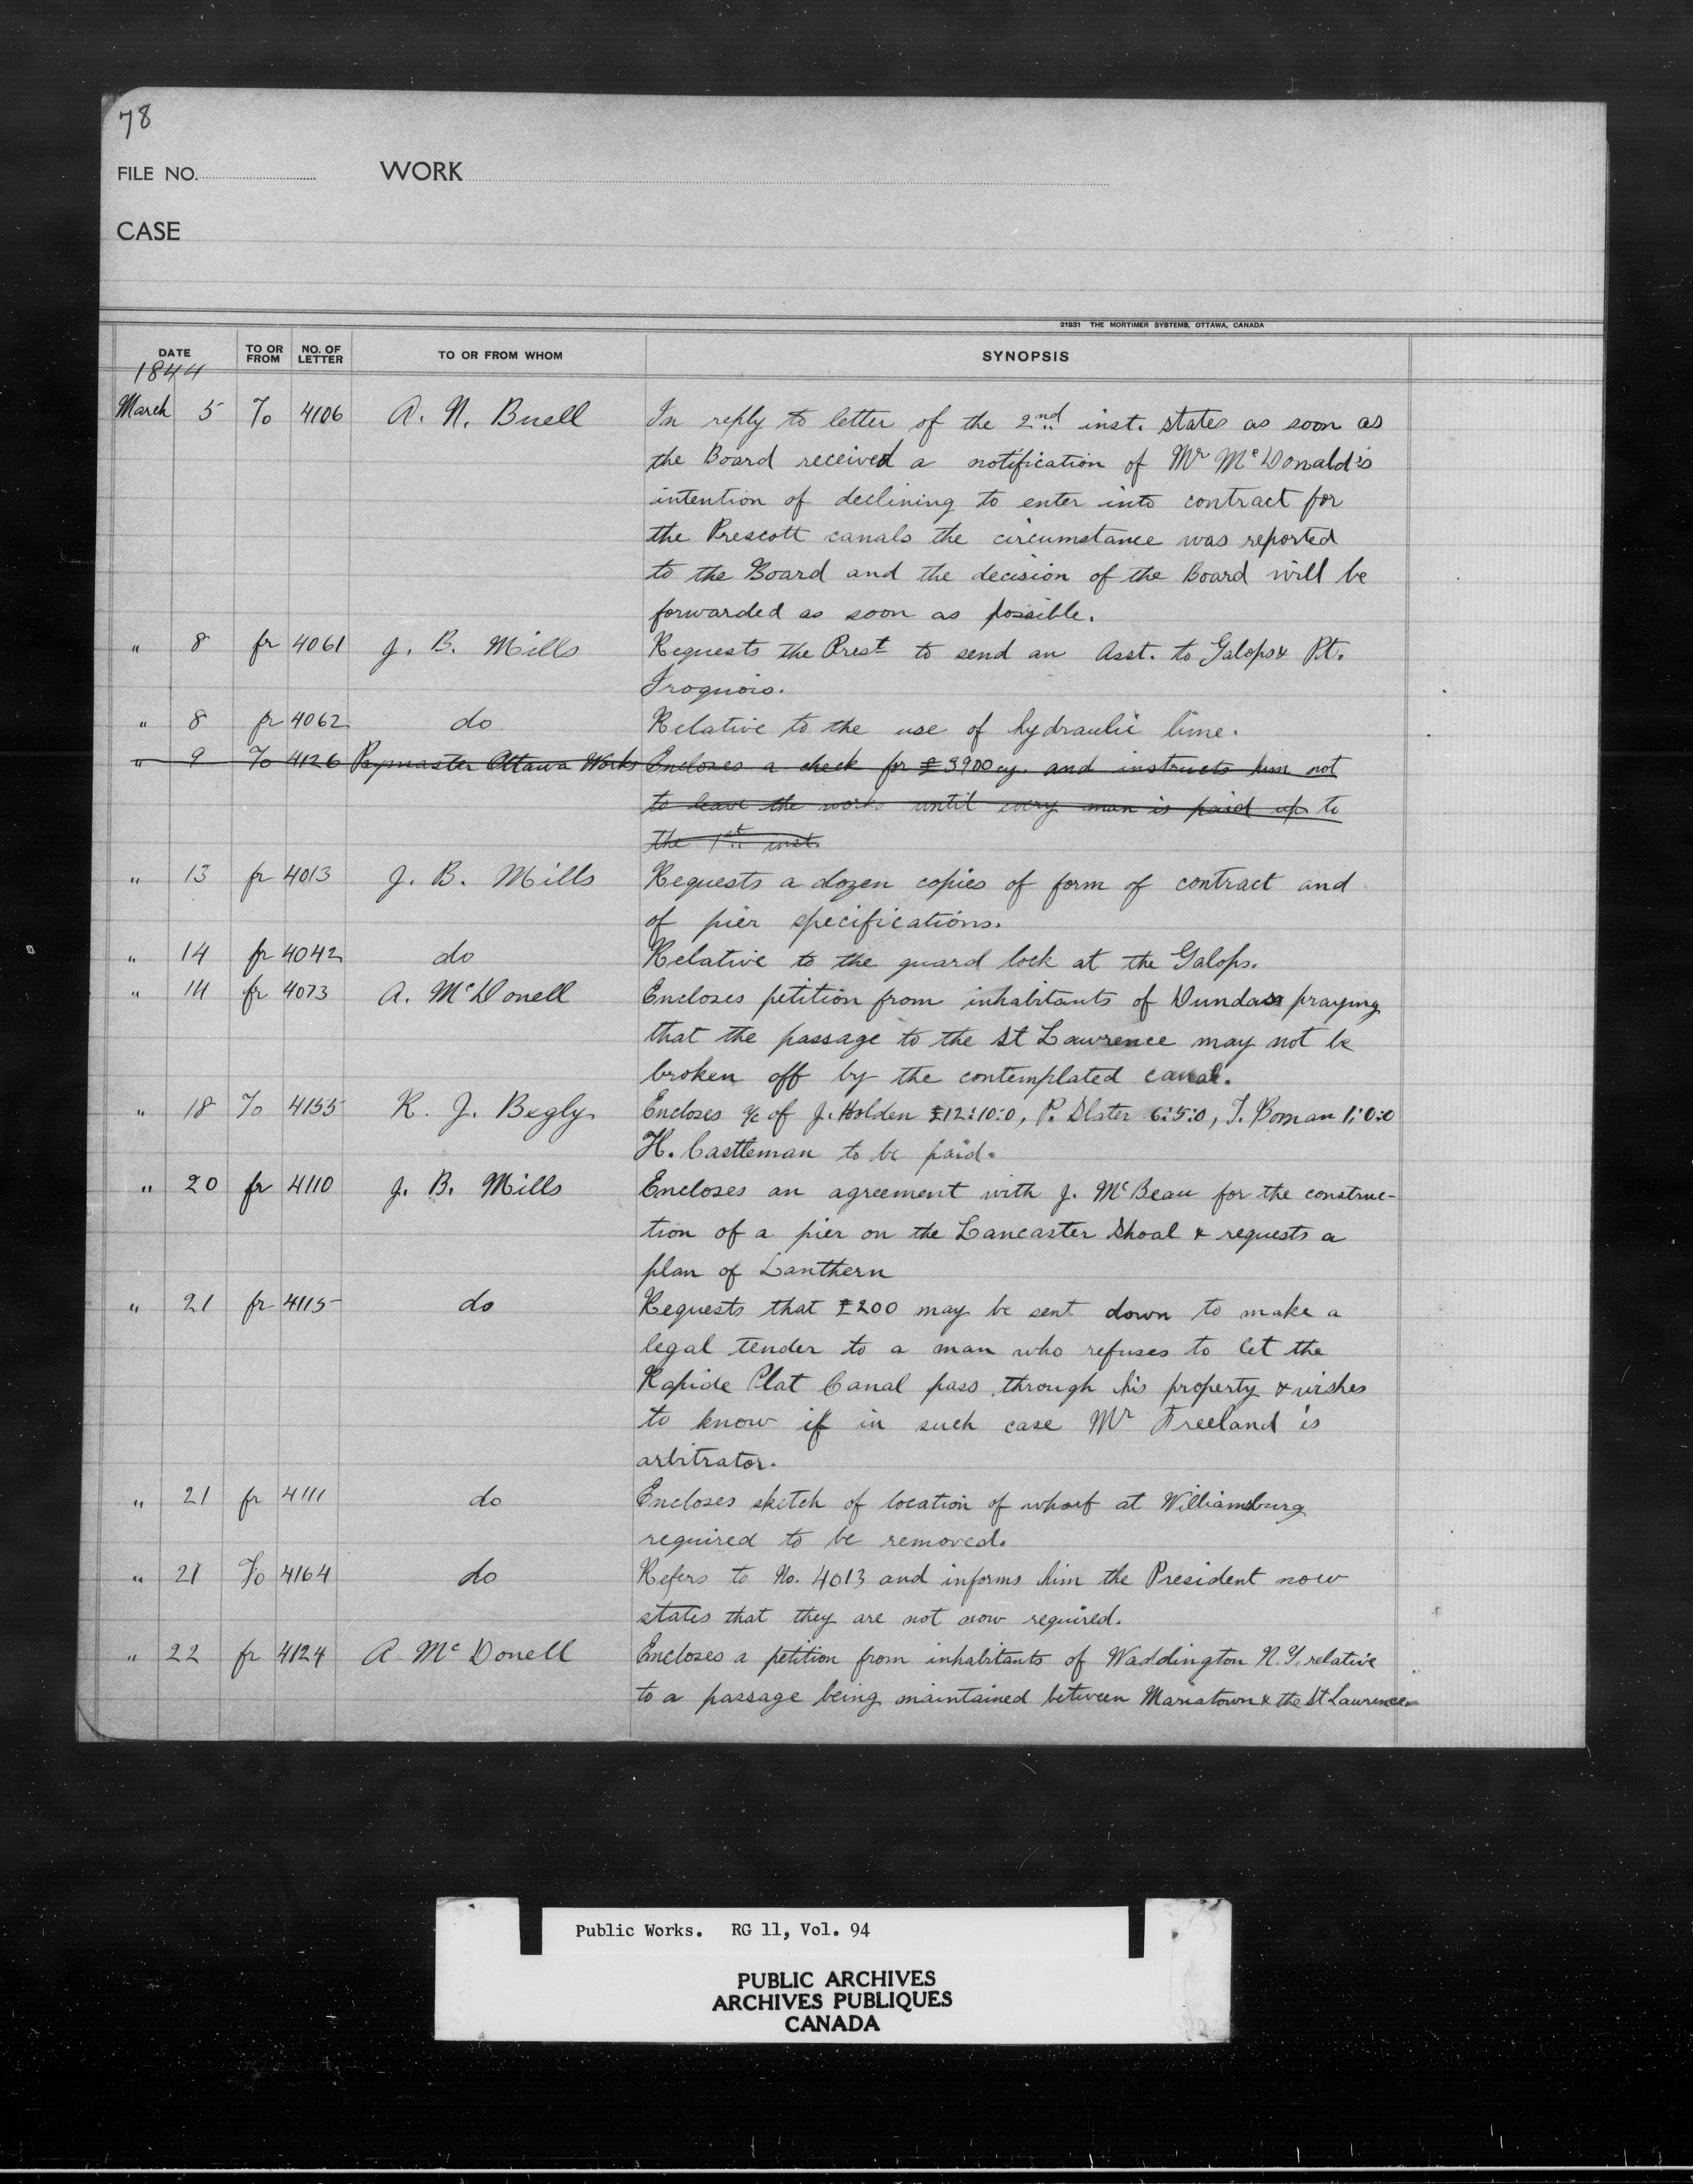 78
FILE NO. WORK
CASE
21831 THE MORTIMER SYSTEMS, OTTAWA, CANADA
DATE TO OR FROM NO. OF LETTER TO OR FROM WHOM SYNOPSIS
1844
March 5 To 4106 A. N. Buell In reply to letter of the 2nd inst. states as soon as
the Board received a notification of Mr McDonald's
intention of declining to enter into contract for
the Prescott canals the circumstance was reported
to the Board and the decision of the Board will be
forwarded as soon as possible.
" 8 fr 4061 J. B. Mills Requests the Prest to send an Asst. to Galops & Pt.
Iroquois.
" 8 fr 4062 do Relative to the use of hydraulic lime.
" 9 To 4126 Paymaster Ottawa Works Encloses a check for £3900 cy. and instructs him not
to leave the works until every man is paid up to
the 1st inst.
" 13 fr 4013 J. B. Mills Requests a dozen copies of form of contract and
of pier specifications.
" 14 fr 4042 do Relative to the guard lock at the Galops.
" 14 fr 4073 A. McDonell Encloses petition from inhabitants of Dundas praying
that the passage to the St Lawrence may not be
broken off by the contemplated canal.
" 18 To 4155 R. J. Begly Encloses a/c of J. Holden £12:10:0, P. Slater 6:5:0, J. Boman 1:0:0
H. Castleman to be paid.
" 20 fr 4110 J. B. Mills Encloses an agreement with J. McBean for the construc-
tion of a pier on the Lancaster Shoal & requests a
plan of Lanthern
" 21 fr 4115 do Requests that £200 may be sent down to make a
legal tender to a man who refuses to let the
Rapide Plat Canal pass through his property & wishes
to know if in such case Mr Freeland is
arbitrator.
" 21 fr 4111 do Encloses sketch of location of wharf at Williamsburg
required to be removed.
" 21 To 4164 do Refers to No. 4013 and informs him the President now
states that they are not now required.
" 22 fr 4124 A. McDonell Encloses a petition from inhabitants of Waddington N.Y. relative
to a passage being maintained between Mariatown & the St Lawrence
Public Works. RG 11, Vol. 94
PUBLIC ARCHIVES
ARCHIVES PUBLIQUES
CANADA